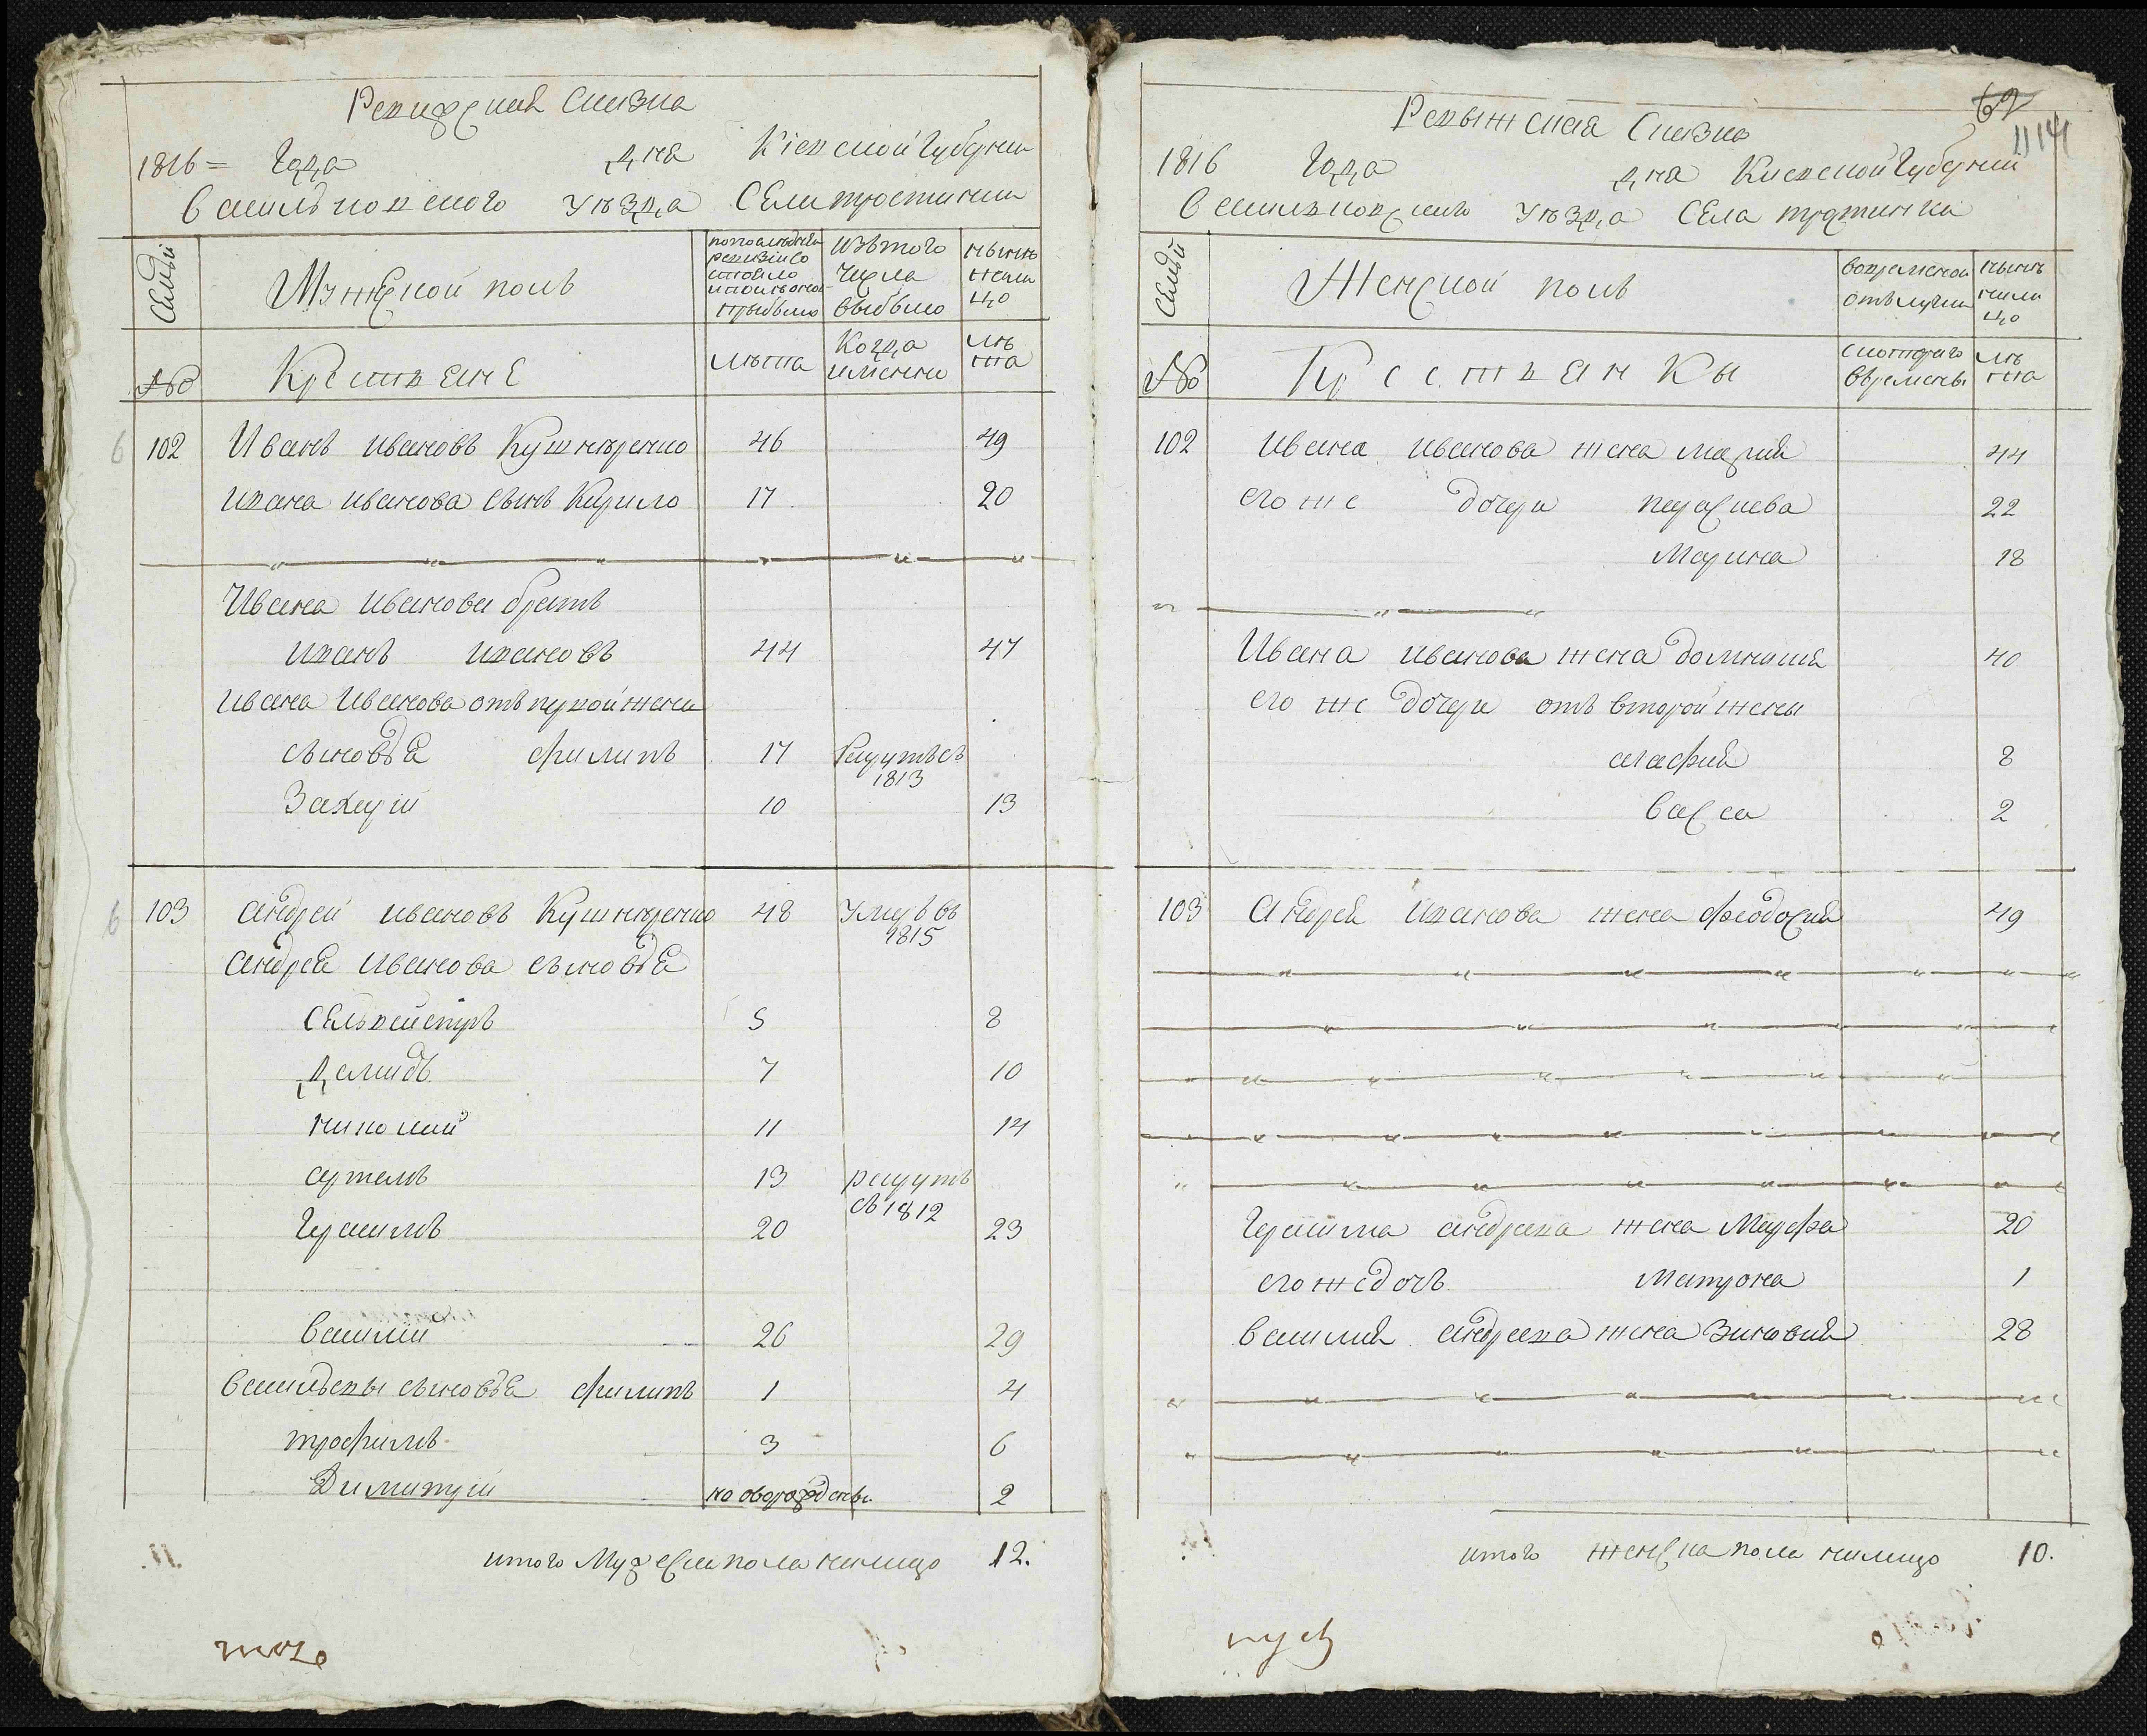 Ревизская Сказка
1816= Года дня Кіевской Губернии
Васильковского уезда Села тростинки
Семьи
Мужеской полъ
по последней ревизіи состояло и после оной прыбыло
Изътого Числа выбыло
ныне на лицо
№
Крестяне
лета
Когда именно
лета
102 Иванъ ивановъ Кушнеренко 46 49
ивана иванова сынъ Кирило 17 20
Ивана иванова братъ
иванъ ивановъ 44 47
ивана Иванова отъ первой жены
сыновья филипъ 17 Рекрутъ съ 1813
Захарій 10 13
103 андрей ивановъ Кушнеренко 48 умеръ въ 1815
андрея иванова сыновья
Селькейстръ 5 8
Демидъ 7 10
николай 11 14
артемъ 13 рекрутъ съ 1812
Герасимъ 20 23
василій 26 29
васильевы сыновья филипъ 1 4
трофимъ 3 6
Димитрій новорожденны 2
итого Мужеска пола налицо 12.
62
1141
Ревыжская Сказка
1816 Года дня Киевской Губерний
Васильковского уезда Села тростинка
Семьи
Женской полъ
вовременой отълучки
ныне нали цо
№
Крестьянкы
скоторого времены
лета
102 ивана иванова жена марія 44
его же дочери параскева 22
Марина 18
Ивана иванова жена домникія 40
его же дочери отъ второй жены
агафия 8
васса 2
103 Андрея Иванова жена феодосия 49
Герасима андреева жена Марфа 20
его же дочь матрона 1
василия андреева жена Зиновия 28
итого женска пола налицо 10.